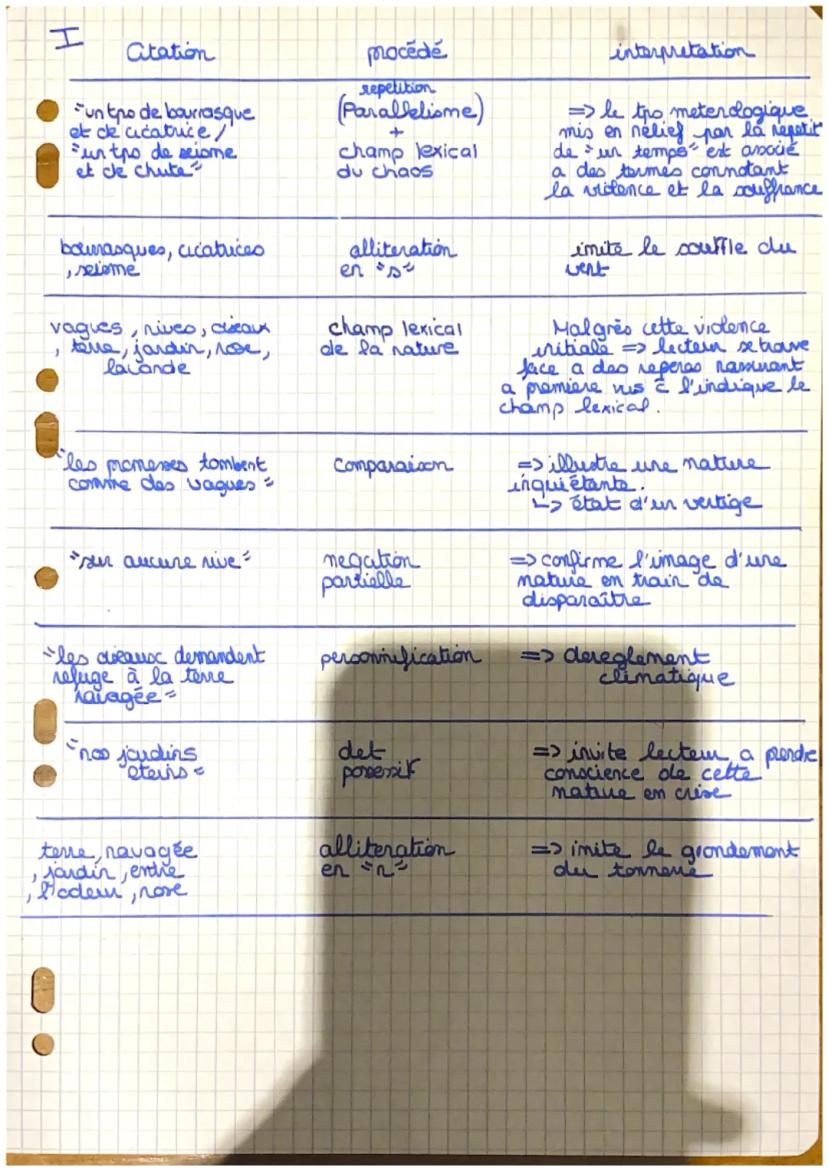 I
citation procédé interpretation
"un tps de bourrasque
et de cicatrice /
"un tps de seisme
et de chute"
repetition
(Parallelisme)
+
champ lexical
du chaos
=> le tps meterologique
mis en relief par la repetit
de "un temps" est associé
a des termes connotant
la violence et la souffrance
bourrasques, cicatrices
, seisme
alliteration
en "s"
imite le souffle du
vent
vagues, rives, oiseaux
, terre, jardin, rose,
lavande
champ lexical
de la nature
Malgrès cette violence
initiale => lecteur se trouve
face a des reperes rassurant
a premiere vus c l'indique le
champ lexical.
"les promesses tombent
comme des vagues"
comparaison
=> illustre une nature
inquiétante.
↳ état d'un vertige
"sur aucune rive"
negation
partielle
=> confirme l'image d'une
nature en train de
disparaître
"les oiseaux demandent
refuge à la terre
ravagée"
personnification
=> dereglement
climatique
"nos jardins
eteirs"
det
possessif
=> invite lecteur a prendre
conscience de cette
nature en crise
terre, ravagée
, jardin, entre
, l'odeur, rose
alliteration
en "r"
=> imite le grondement
du tonnerre